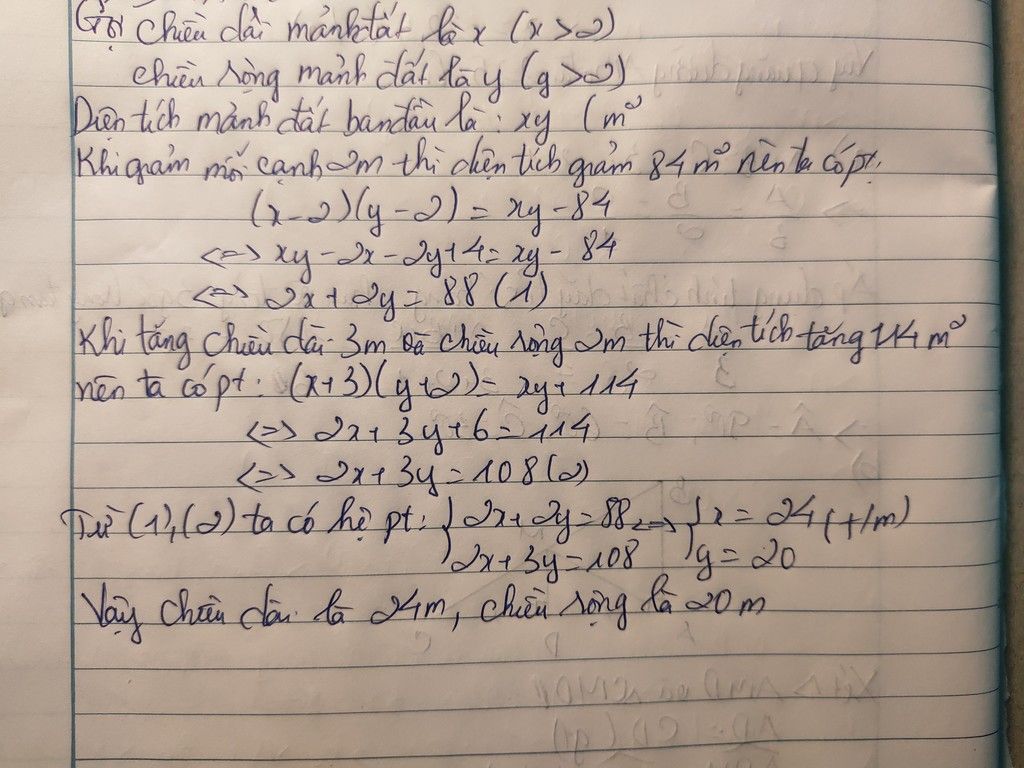 Gọi chiều dài mảnh đất là x (x>2)
chiều rộng mảnh đất là y (y>2)
Diện tích mảnh đất ban đầu là: xy (m²
Khi giảm mỗi cạnh 2m thì diện tích giảm 84m² nên ta có pt:
(x-2)(y-2) = xy-84
<=> xy-2x-2y+4= xy-84
<=> 2x+2y= 88 (1)
Khi tăng chiều dài 3m và chiều rộng 2m thì diện tích tăng 114 m²
nên ta có pt: (x+3)(y+2)= xy+114
<=> 2x+3y+6=114
<=> 2x+3y=108(2)
Từ (1),(2) ta có hệ pt: {2x+2y=88 <=> {x=24 (t/m)
2x+3y=108 y=20
Vậy chiều dài là 24m, chiều rộng là 20m